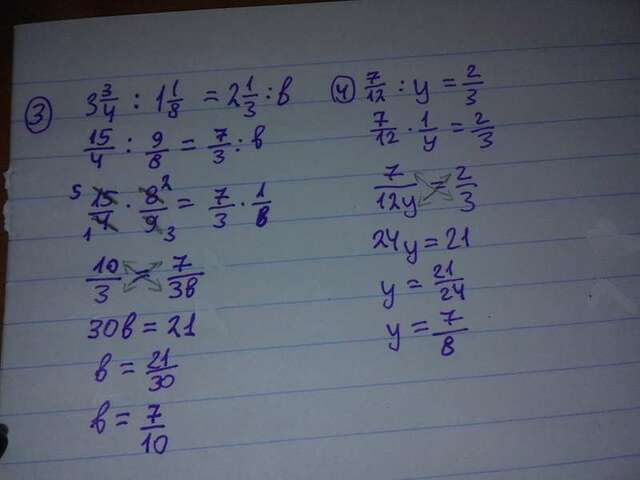 ③ 3 3/4 : 1 1/8 = 2 1/3 : в
15/4 : 9/8 = 7/3 : в
5 15/4 1 · 8 2/9 3 = 7/3 · 1/в
10/3 = 7/3в
30в = 21
в = 21/30
в = 7/10
④ 7/12 : y = 2/3
7/12 · 1/y = 2/3
7/12y = 2/3
24y = 21
y = 21/24
y = 7/8